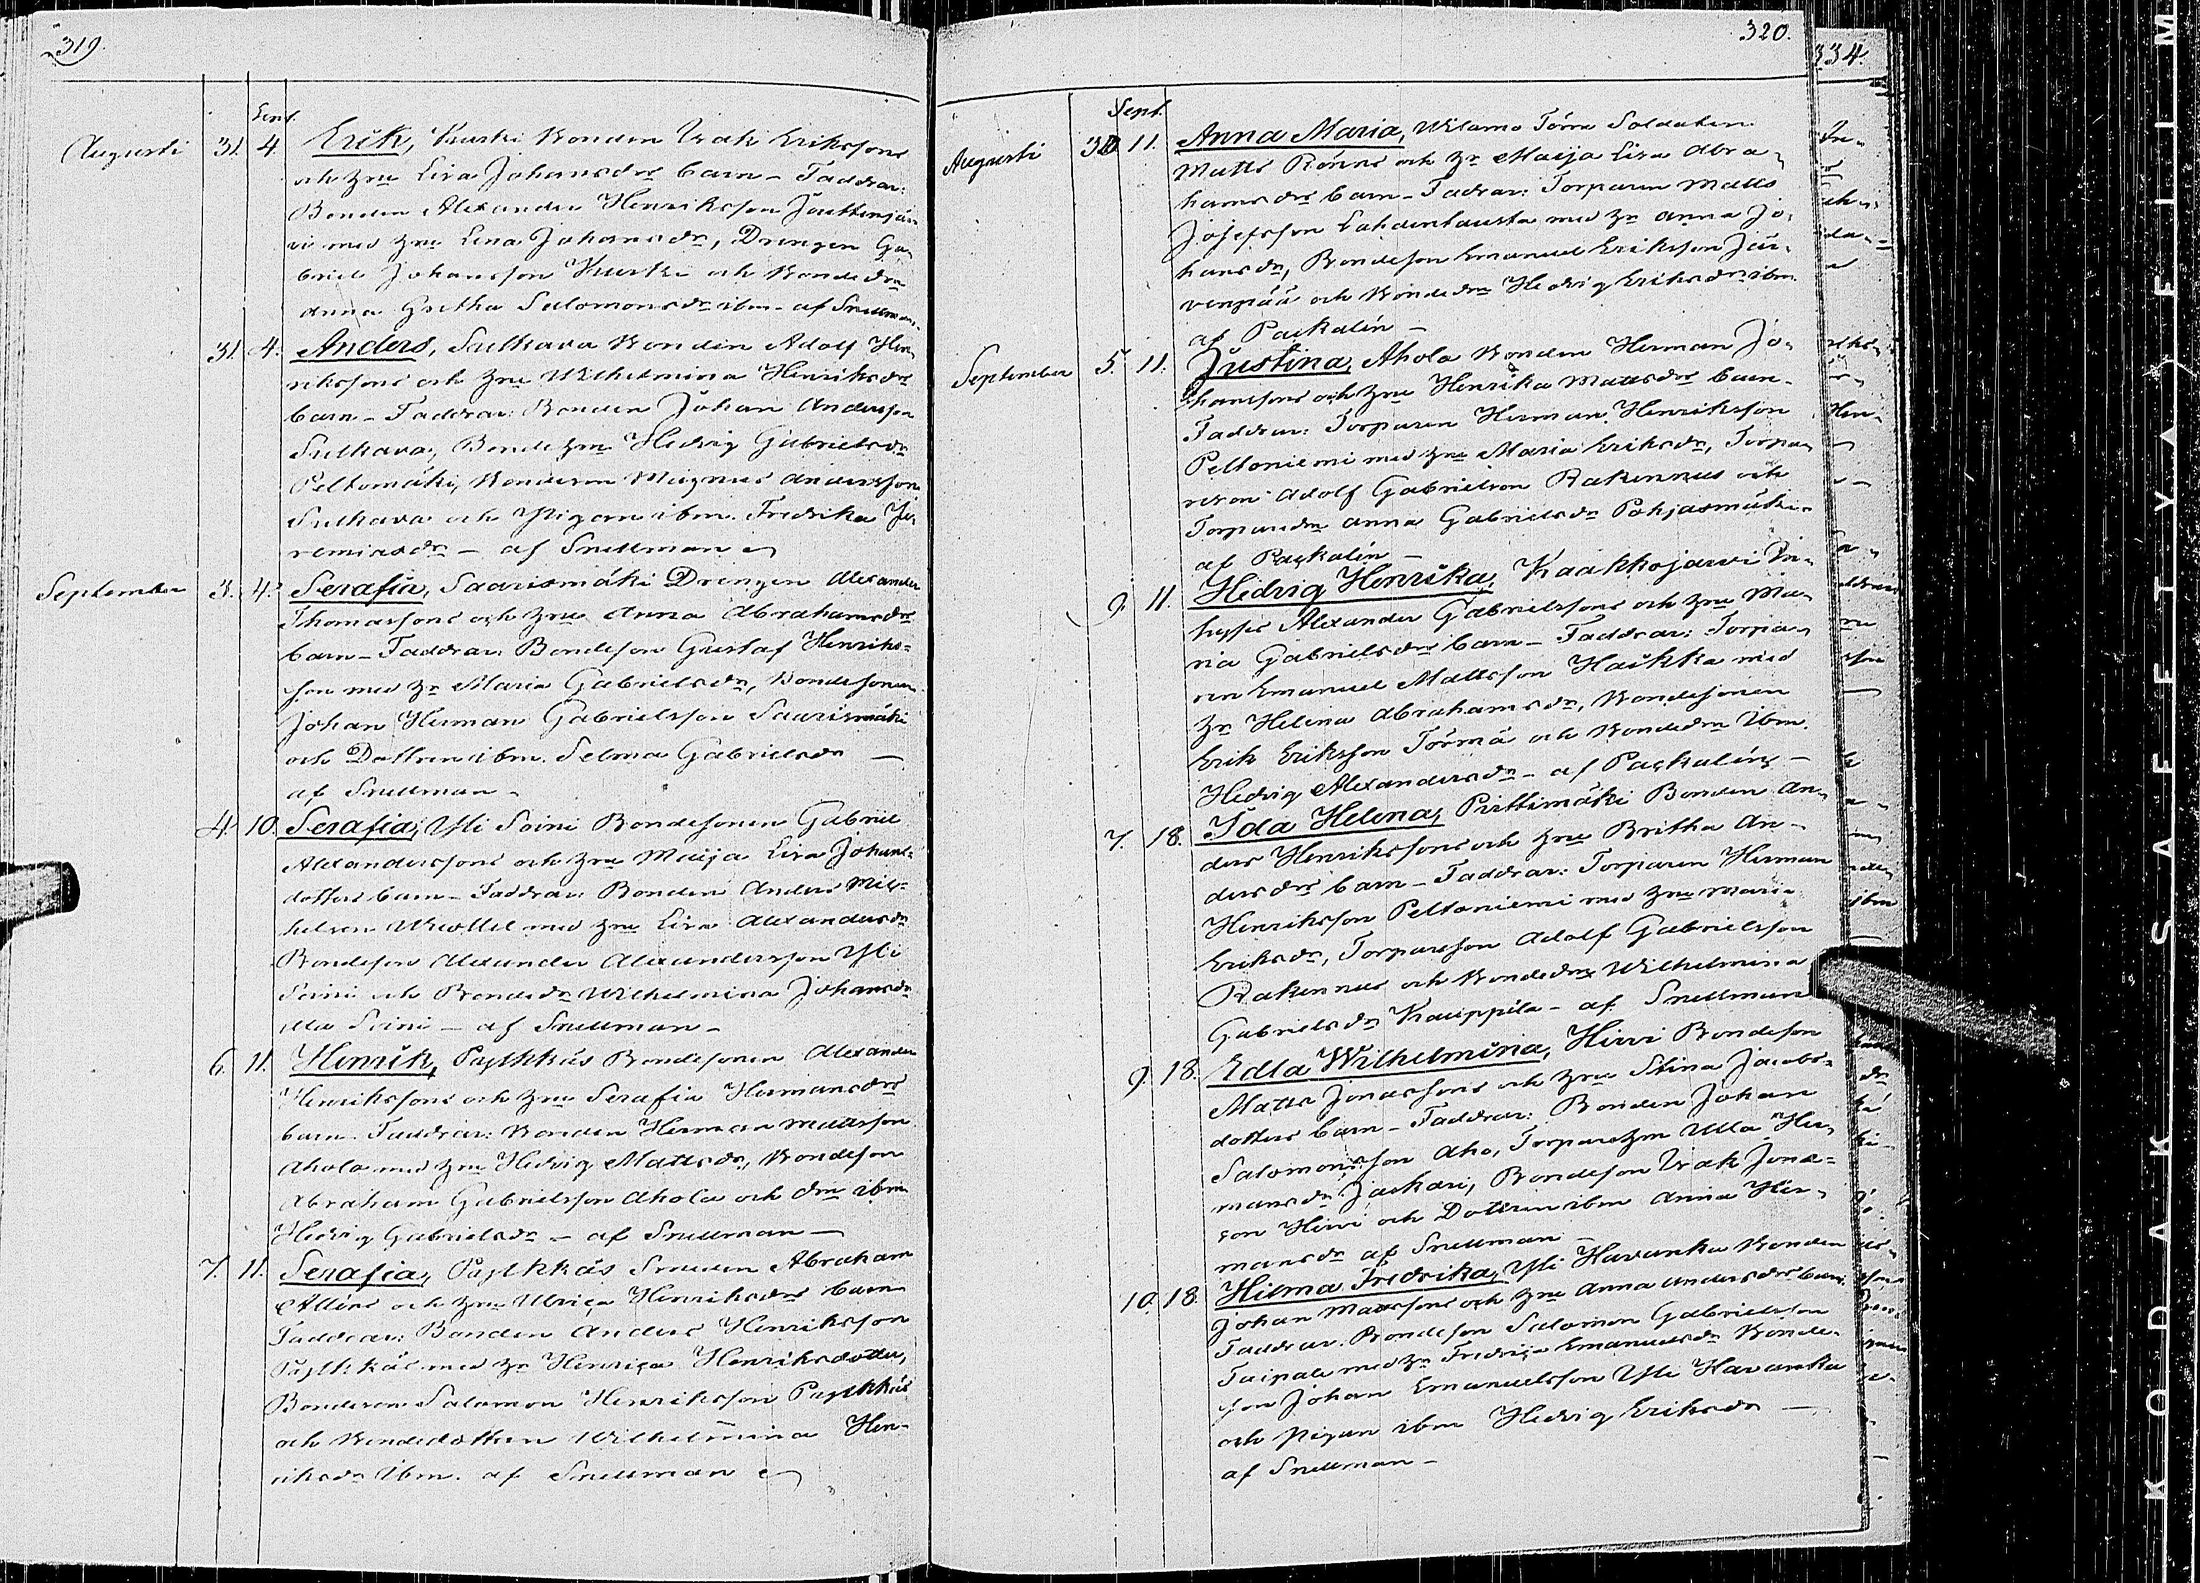 319.
Sept.
Augusti 31. 4. Erik, Kurki Bonden Isak Erikssons
och hru Lisa Johansdrs barn – Faddrar:
Bonden Alexander Henriksson Jäättenjär-
vi med hru Lena Johansdr, Drengen Ga-
briel Johansson Kurki och Bondedrn
Anna Gretha Salomonsdr ibm – af Snellman.
31. 4. Anders, Sulkava Bonden Adolf Hen-
rikssons och hru Wilhelmina Henriksdrs
barn – Faddrar: Bonden Johan Andersson
Sulkava, Bondehru Hedvig Gabrielsdr
Peltomäki, Bondeson Magnus Andersson
Sulkava och Pigan ibm. Fredrika Je-
remiasdr – af Snellman
September 3. 4. Serafia, Saarismäki Drengen Alexander
Thomassons och hru Anna Abrahamsdrs
barn – Faddrar: Bondeson Gustaf Henriks-
son med hr Maria Gabrielsdr, Bondesonen
Johan Herman Gabrielsson Saarismäki
och Dottren ibm. Selma Gabrielsdr –
af Snellman –
4. 10. Serafia, Yli Soini Bondesonen Gabriel
Alexanderssons och hru Maija Lisa Johans-
dotters barn – Faddrar: Bonden Anders Mik-
kelson med hru Lisa Alexandersdr
Bondeson Alexander Alexandersson Yli
Soini och Bondedr Wilhelmina Johansdr
Ala Soini – af Snellman –
6. 11. Henrik, Pajukkäs Bondesonen Alexander
Henrikssons och hru Serafia Hermansdrs
barn – Faddrar: Bonden Herman Mattsson
Ahola med hru Hedvig Mattsdr, Bondeson
Abraham Gabrielsson Ahola och drn ibm
Hedvig Gabrielsdr – af Snellman –
7. 11. Serafia, Smeden Abraham
och hru Ulrica Henriksdrs barn
Faddrar: Bonden Anders Henriksson
med hr Henrica Henriksdotter,
Bondeson Salomon Henriksson
och Bondedottren Wilhelmina Hen-
riksdr ibm. af Snellman
320.
334.
Sept.
Augusti 30 11. Anna Maria, Wilamo Törn Soldaten
Matts Rönns och hr Maija Lisa Abra-
hamsdrs barn – Faddrar: Torparen Matts
Josefsson Lahdentausta med hr Anna Jo-
hansdr, Bondeson Emanuel Eriksson Jär-
venpää och Bondedrn Hedvig Eriksdr ibm.
af Paçkalén –
September 5. 11. Justina, Ahola Bonden Herman Jo-
hanssons och hru Henrika Mattsdrs barn –
Faddrar: Torparen Herman Henriksson
Peltoniemi med hru Maria Eriksdr, Torpa-
reson Adolf Gabrielson Rakennus och
Torparedrn Anna Gabrielsdr Pohjasmäki –
af Paçkalén –
9. 11. Hedvig Henrika, Kaakkojärvi In-
hyses Alexander Gabrielssons och hru Ma-
ria Gabrielsdrs barn – Faddrar: Torpa-
ren Emanuel Mattsson Haikka med
hr Helena Abrahamsdr, Bondesonen
Erik Eriksson Törmä och Bondedrn ibm.
Hedvig Alexandersdr – af Paçkalén –
7. 18. Ida Helena, Pirttimäki Bonden An-
ders Henrikssons och hru Britha An-
dersdrs barn – Faddrar: Torparen Herman
Henriksson Peltoniemi med hru Maria
Eriksdr, Torpareson Adolf Gabrielsson
Rakennus och Bondedrn Wilhelmina
Gabrielsdr Kauppila – af Snellman
9. 18. Edla Wilhelmina, Hirvi Bondeson
Matts Jonassons och hru Stina Jacobs-
dotters barn – Faddrar: Bonden Johan
Salomonsson Aho, Torparehru Ulla Her-
mansdr Jaskari, Bondeson Isak Jona-
son Hirvi och Dottren ibm Anna Her-
mansdr af Snellman –
10. 18. Hilma Fredrika, Yli Havanka Bonden
Johan Mattssons och hru Anna Andersdrs barn.
Faddrar: Bondeson Salomon Gabrielsson
Taipale med hr Fredrica Emanuelsdr Bonde-
son Johan Emanuelsson Yli Havanka
och Pigan ibm Hedvig Eriksdr –
af Snellman –
KODAK SAFETY A FILM